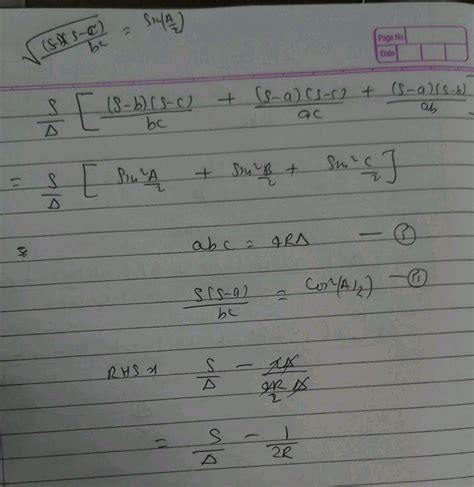 √((s-b)(s-c)/bc) = Sin(A/2)
Page No
Date
S/Δ [ (S-b)(S-c)/bc + (S-a)(S-c)/ac + (S-a)(S-b)/ab
= S/Δ [ Sin²A/2 + Sin²B/2 + Sin²C/2 ]
abc = 4RΔ —
S(S-a)/bc = Cos²(A/2) —
RHS S/Δ -
= S/Δ - 1/2R